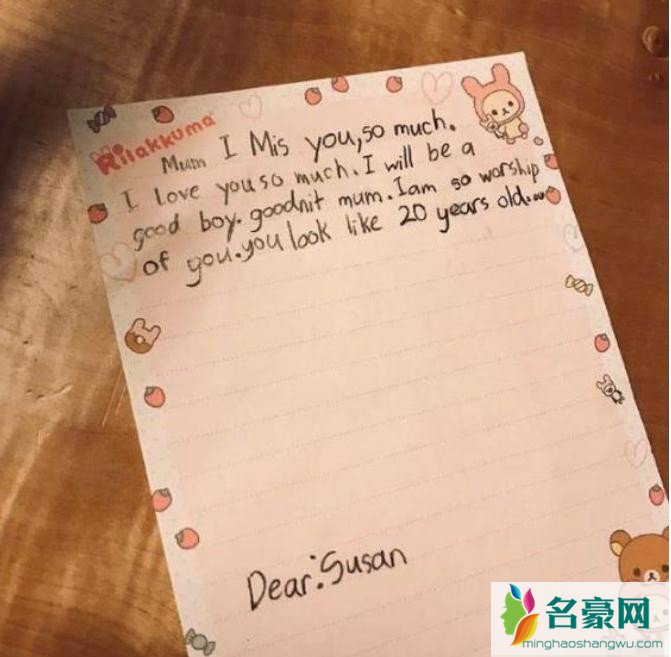 Rilakkuma
Mum I Mis you,so much.
I love you so much.I will be a
good boy.goodnit mum.Iam so worship
of you.you look like 20 years old...
Dear:Susan
名豪网
minghaoshangwu.com